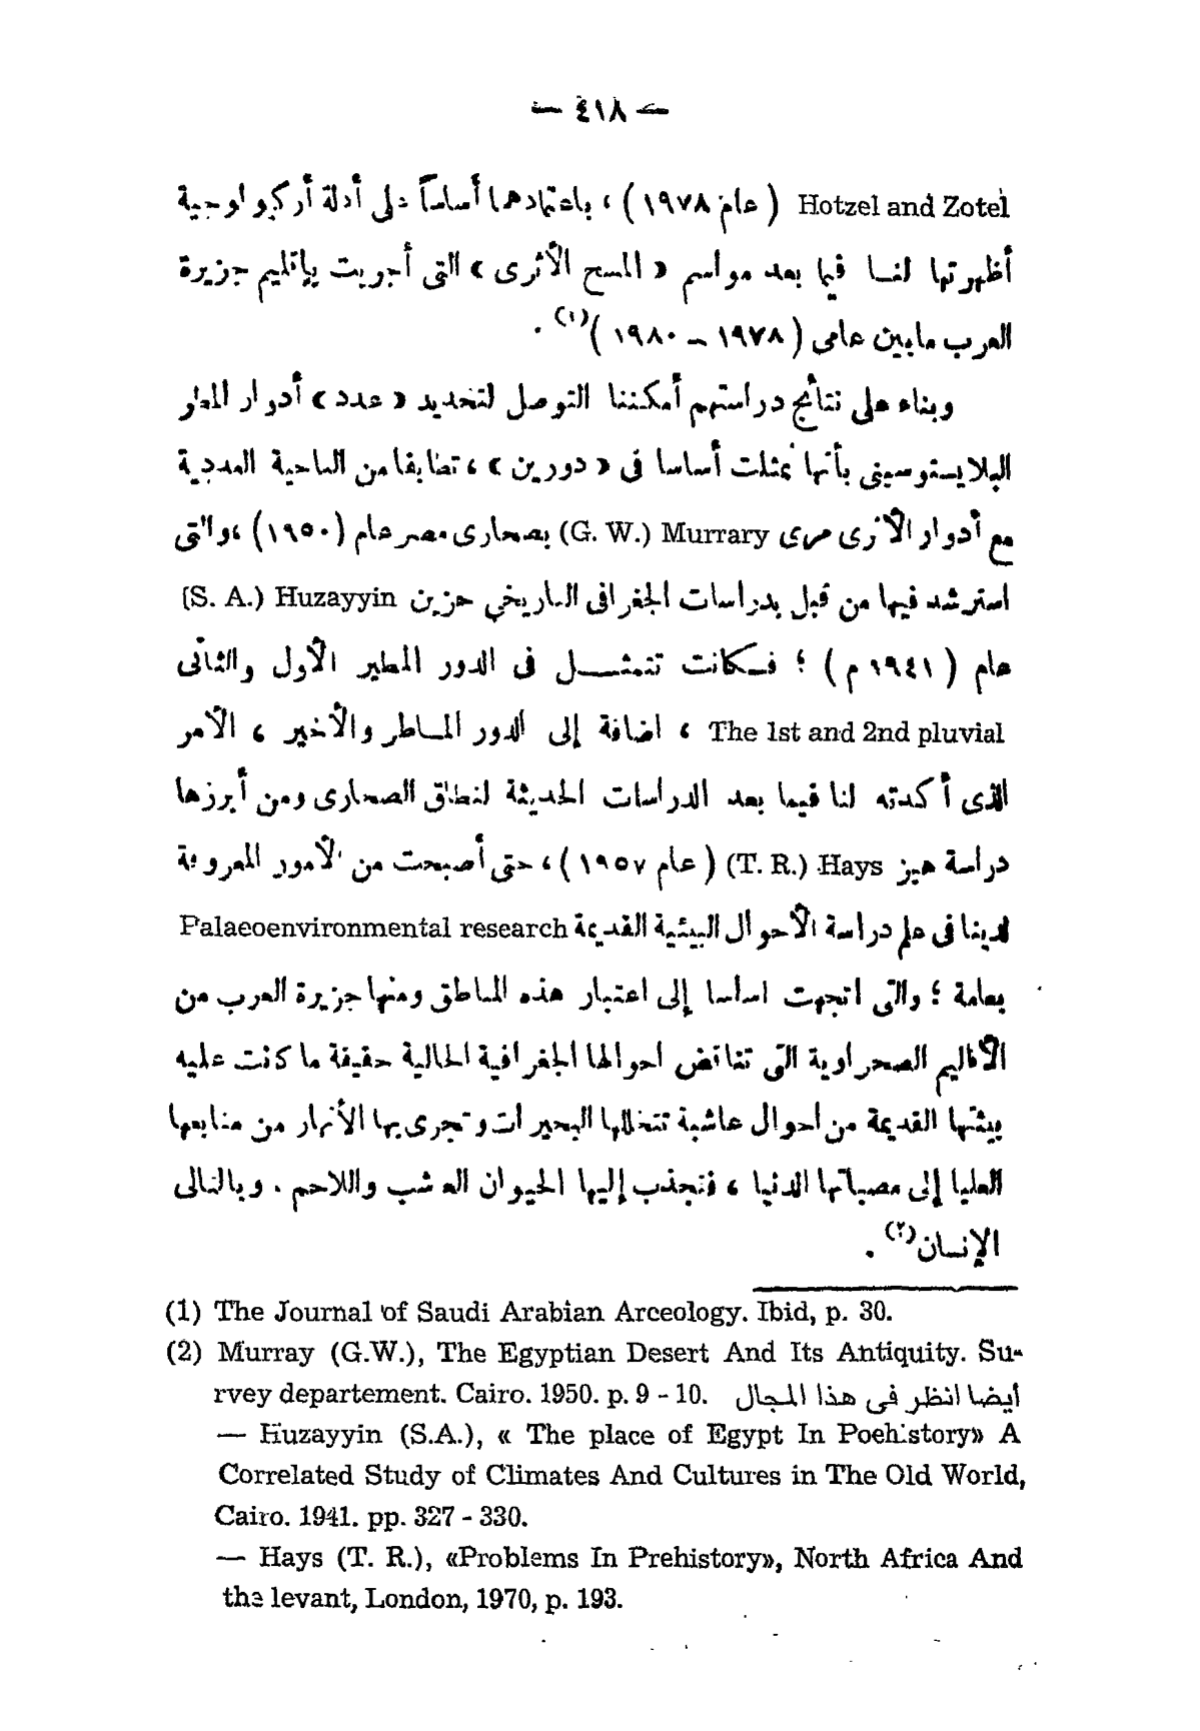 — ٤١٨ —
Hotzel and Zotel ( عام ١٩٧٨ ) ، باعتمادهما أساساً على أدلة أركيولوجية
أظهرتها لنا فيما بعد مواسم « المسح الأثرى » التى أجريت بإقليم جزيرة
العرب مابين عامى ( ١٩٧٨ – ١٩٨٠ )(١) .
وبناء على نتائج دراستهم أمكننا التوصل لتحديد « عدد » أدوار المطر
البلايستوسينى بأنها تمثلت أساسا فى « دورين » ، تطابقا من الناحية العددية
مع أدوار الأثرى مرى Murrary (G. W.) بصحارى مصر عام (١٩٥٠) ، والتى
استرشد فيها من قبل بدراسات الجغرافى التاريخي حزين Huzayyin (S. A.)
عام ( ١٩٤١ م ) ؛ فكانت تتمثل فى الدور المطير الأول والثانى
The 1st and 2nd pluvial ، اضافة إلى الدور الماطر والأخير ، الأمر
الذى أكدته لنا فيما بعد الدراسات الحديثة لنطاق الصحارى ومن أبرزها
دراسة هيز Hays (T. R.) ( عام ١٩٥٧ ) ، حتى أصبحت من الأمور المعروفة
لدينا فى علم دراسة الأحوال البيئية القديمة Palaeoenvironmental research
بعامة ؛ والتى اتجهت اساسا إلى اعتبار هذه المناطق ومنها جزيرة العرب من
الأقاليم الصحراوية التى تناقض احوالها الجغرافية الحالية حقيقة ما كانت عليه
بيئتها القديمة من احوال عاشبة تتخللها البحيرات وتجرى بها الأنهار من منابعها
العليا إلى مصباتها الدنيا ، فتجذب إليها الحيوان العشب واللاحم . وبالتالى
الإنسان(٢) .
(1) The Journal of Saudi Arabian Arceology. Ibid, p. 30.
(2) Murray (G.W.), The Egyptian Desert And Its Antiquity. Su-
rvey departement. Cairo. 1950. p. 9 - 10. أيضا انظر فى هذا المجال
— Huzayyin (S.A.), « The place of Egypt In Poehistory» A
Correlated Study of Climates And Cultures in The Old World,
Cairo. 1941. pp. 327 - 330.
— Hays (T. R.), «Problems In Prehistory», North Africa And
the levant, London, 1970, p. 193.